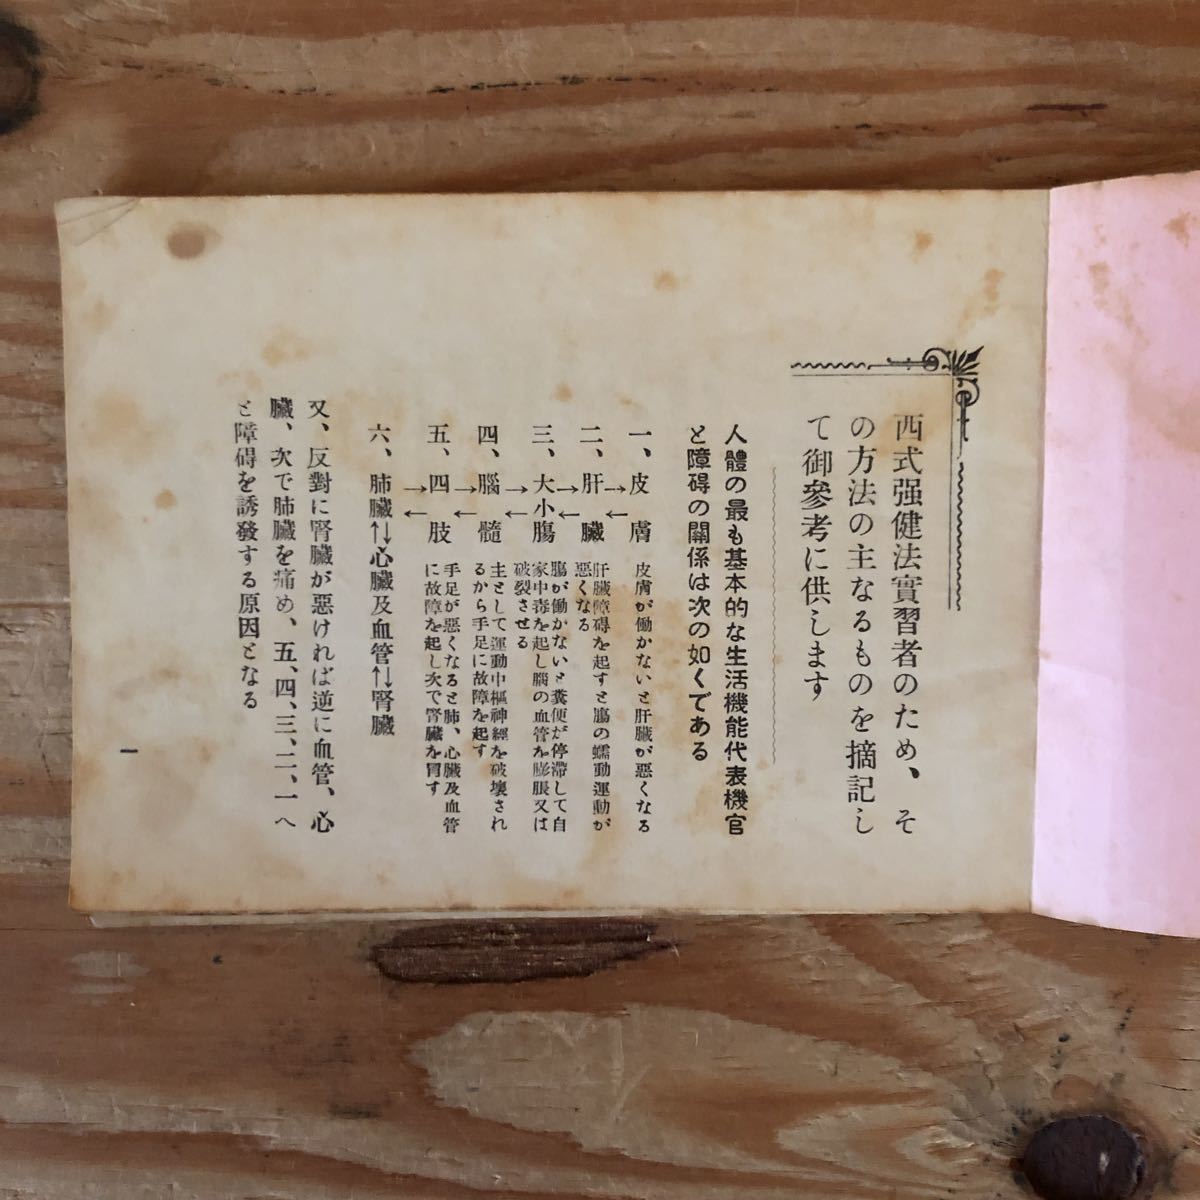 西式强健法實習者のため、そ
の方法の主なるものを摘記し
て御參考に供します
人體の最も基本的な生活機能代表機官
と障碍の關係は次の如くである
一、皮膚 皮膚が働かないと肝臓が悪くなる
→←
二、肝臓 肝臓障碍を起すと腸の蠕動運動が
悪くなる
→←
三、大小腸 腸が働かないと糞便が停滯して自
家中毒を起し腦の血管を膨脹又は
破裂させる
→←
四、腦髓 主として運動中樞神經を破壞され
るから手足に故障を起す
→←
五、四肢 手足が悪くなると肺、心臓及血管
に故障を起し次で腎臓を冐す
→←
六、肺臓⇅心臓及血管⇅腎臓
又、反對に腎臓が惡ければ逆に血管、心
臓、次で肺臓を痛め、五、四、三、二、一へ
と障碍を誘發する原因となる
一